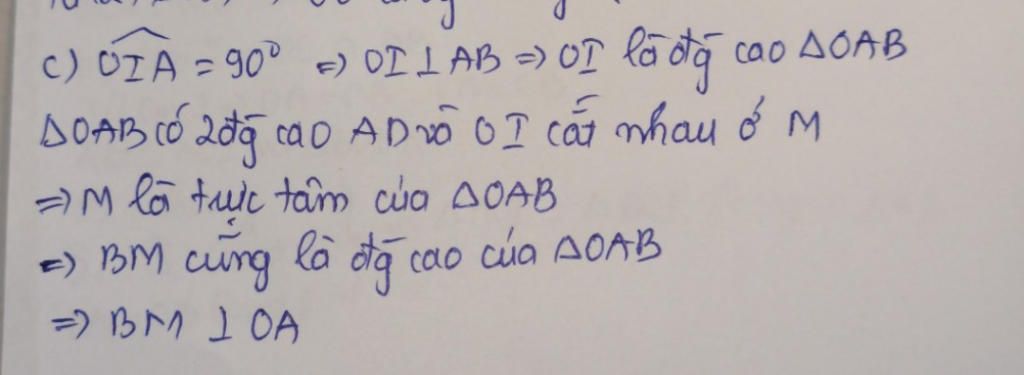 c) OIA = 90° => OI ⊥ AB => OI là đg cao ΔOAB
ΔOAB có 2 đg cao AD và OI cắt nhau ở M
=> M là trực tâm của ΔOAB
=> BM cũng là đg cao của ΔOAB
=> BM ⊥ OA